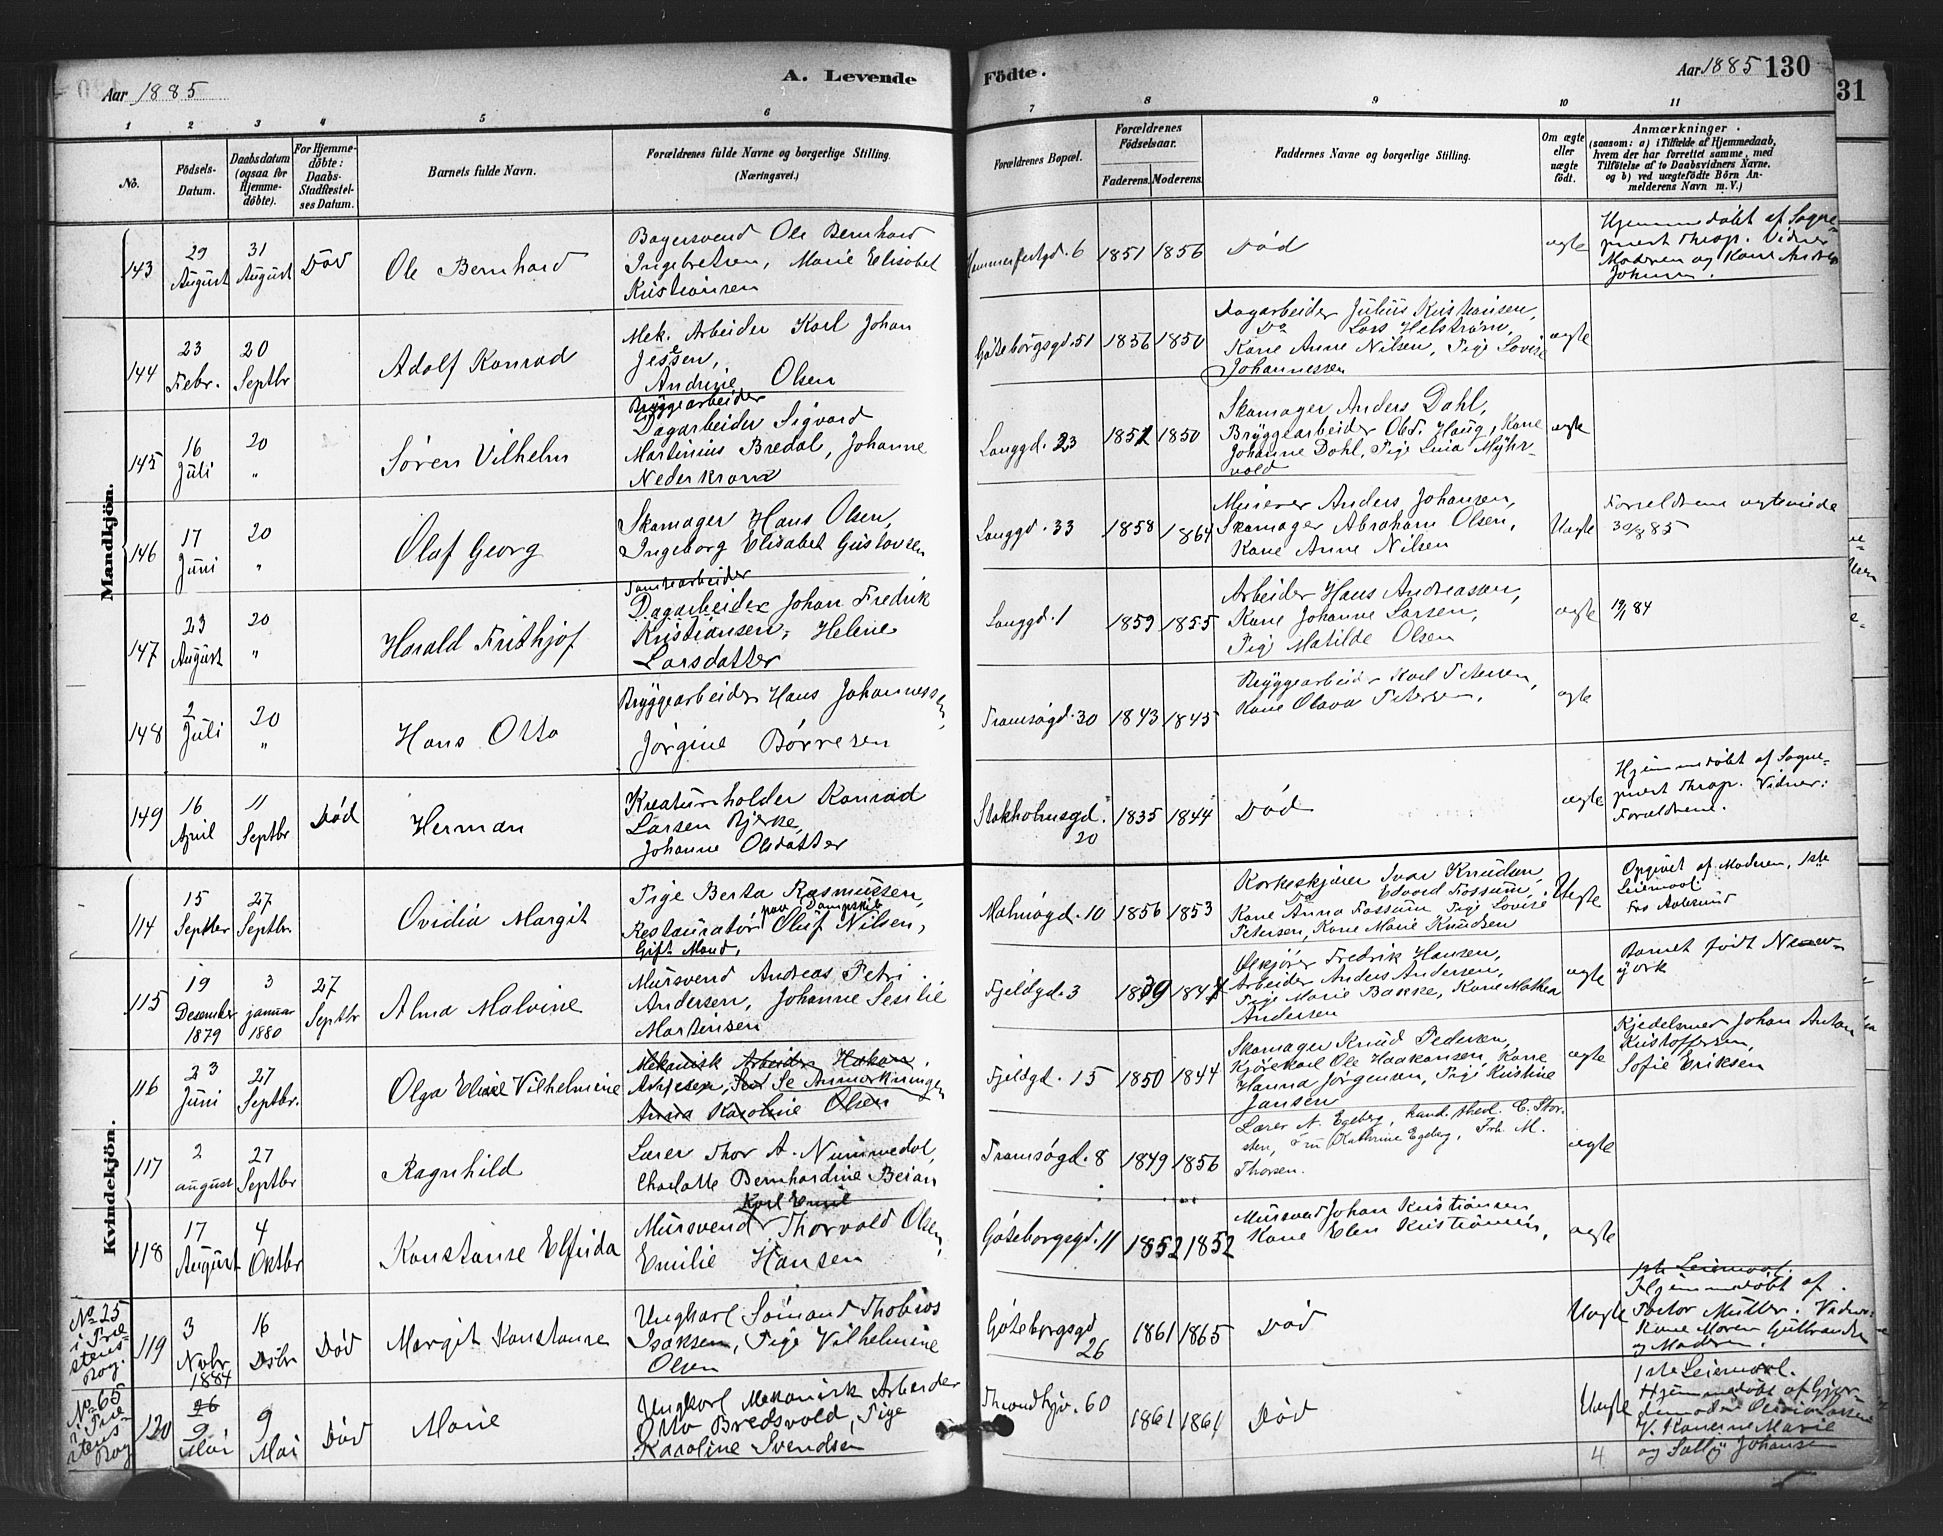 Aar 1885
A. Levende
Födte.
Aar 1885 130
31
1 2 3 4 5 6 7 8 9 10 11
No.
Födsels-
Datum.
Daabsdatum
(ogsaa for
Hjemme-
döbte).
For Hjemme-
döbte:
Daabs-
Stadfæstel-
ses Datum.
Barnets fulde Navn.
Forældrenes fulde Navne og borgerlige Stilling.
(Næringsvei.)
Forældrenes Bopæl.
Forældrenes
Födselsaar.
Faderens. Moderens.
Faddernes Navne og borgerlige Stilling.
Om ægte
eller
uægte
födt.
Anmærkninger.
(saasom: a) i Tilfælde af Hjemmedaab,
hvem der har forrettet samme, med
Tilföielse af to Daabsvidners Navne.
og b) ved uægtefödte Börn An-
melderens Navn m. V.)
Mandkjön.
143
29
August
31
August
Död
Ole Bernhard
Bagersvend Ole Bernhard
Ingebretsen, Marie Elisabet
Kristiansen
Hammerfestgd. 6
1851 1856
Död
ægte
Hjemmedöbt af Sogne-
prest Throp. Vidner
Moderen og Kone
Johnsen.
144
23
Febr.
20
Septbr
Adolf Konrad
Mek. Arbeider Karl Johan
Jessen,
Andrine Olsen
Göteborgsgd. 51
1856 1850
Dagarbeider Julius Kristiansen,
Do Lars Helström,
Kone Anne Nilsen, Pige Lovise
Johannessen
ægte
145
16
Juli
20
"
Sören Vilhelm
Bryggearbeider
Dagarbeider Sigvard
Martinius Bredal, Johanne
Nederkrom
Langgd. 23
1851 1850
Skomager Anders Dahl,
Bryggearbeider Haug, Kone
Johanne Dahl, Pige Lina Myhr-
vold
ægte
146
17
Juni
20
"
Olaf Georg
Skomager Hans Olsen,
Ingeborg Elisabet Gustavsen
Langgd. 33
1858 1864
Murer Anders Johansen,
Skomager Abraham Olsen,
Kone Anne Nilsen
Uægte
Forældrene ægteviede
30/8 85
147
23
August
20
"
Harald Frithjof
Tomtearbeider
Dagarbeider Johan Fredrik
Kristiansen, Helene
Larsdatter
Langgd. 1
1859 1855
Arbeider Hans Andreassen,
Kone Johanne Larsen,
Pige Matilde Olsen
ægte
19/1 84
148
2
Juli
20
"
Hans Otto
Bryggearbeider Hans Johannessen,
Jörgine Börresen
Tromsögd. 30
1843 1845
Bryggearbeider Karl Petersen,
Kone Olava Petersen.
ægte
149
16
April
11
Septbr
Död
Herman
Kreaturholder Konrad
Larsen Bjerke,
Johanne Olsdatter
Stokholmsgd.
20
1835 1844
Död
ægte
Hjemmedöbt af Sogne-
prest Throp. Vidner:
Forældrene.
Kvindekjön.
114
15
Septber
27
Septbr.
Ovidia Margit
Pige Berta Rasmussen,
Restauratör paa Dampskib Oluf Nilsen,
Gift Mand.
Malmögd. 10
1856 1853
Korkeskjærer Ivar Knudsen,
Do Edvard Fossum,
Kone Anna Fossum, Pige Lovise
Petersen, Kone Marie Knudsen
Uægte
Opgivet af Moderen, 1ste
Leiermaal
Fra Aalesund
115
19
Desember
1879
3
januar
1880
27
Septbr
Alma Malvine
Mursvend Andreas Petri
Andersen, Johanne Sesilie
Martinsen
Fjeldgd. 3
1839 1844
Ölkjörer Fredrik Hansen,
Arbeider Anders Andersen,
Pige Marie Bakke, Kone Mathea
Andersen
ægte
Barnet född New-
york
116
23
Juni
27
Septbr.
Olga Eline Vilhelmine
Mekanisk Arbeider Hakon
Se Anmærkningen
Anna Karoline Olsen
Fjeldgd. 15
1850 1844
Skomager Knud Pedersen,
Kjörekarl Ole Haakonsen, Kone
Hanna Jörgensen, Pige Kristine
Jansen
ægte
Kjedelsmed Johan Anton
Kristoffersen,
Sofie Eriksen
117
2
august
27
Septbr
Ragnhild
Lærer Thor A. Nummedal,
Charlotte Bernhardine Beian
Tromsögd. 8
1849 1856
Lærer A. Egeberg, kand. theol. C. Thor-
sen, Fru Kathrine Egeberg, Frk. M.
Thorsen.
ægte
118
17
August
4
Oktbr
Konstanse Elfrida
Karl Emil
Mursvend Thorvald Olsen,
Emilie Hansen
Göteborgsgd. 11
1852 1852
Mursvend Johan Kristiansen
Kone Elen Kristiansen,
ægte
No 25
i Pre
stens
Bog.
119
3
Novbr
1884
16
Dsbr
Död
Margit Konstanse
Ungkarl Sömand Thobias
Isaksen, Pige Vilhelmine
Olsen
Göteborgsgd
26
1861 1865
Död
Uægte
1ste Leiermaal.
Hjemmedöbt af
Pastor Müller. Vidner:
Kone Maren Gulbrandsen
og Moderen.
No 65
i Pre
stens
Bog
120
26
9
Mai
9
Mai
Död
Marie
Ungkarl Mekanisk Arbeider
Otto Bredsvold, Pige
Karoline Svendsen
Throndhjv. 60
1861 1861
Död
Uægte
1ste Leiermaal.
Hjemmedöbt af Gjor-
demoder Olivia Larsen
V. Konerne Marie
og Sally Johansen
4